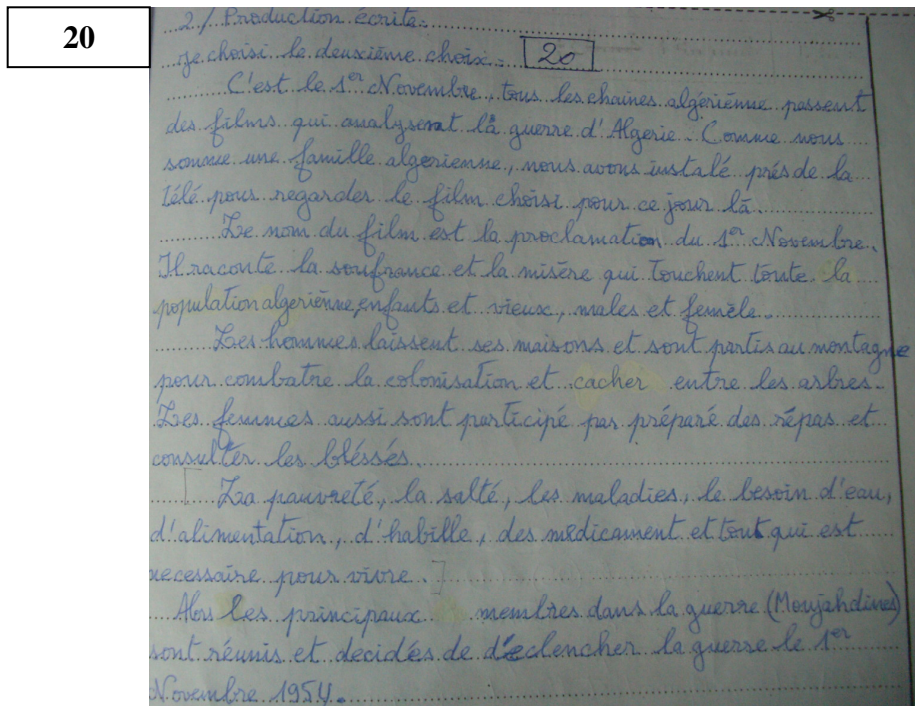 20
2./ Production écrite.
Je choisi le deuxième choix. 20
C'est le 1er Novembre, tous les chaines algériénne passent
des films qui analysent la guerre d'Algerie. Comme nous
somme une famille algerienne, nous avons instalé prés de la
télé pour regarder le film choisi pour ce jour lā.
Le nom du film est la proclamation du 1er Novembre.
Il raconte la soufrance et la misère qui touchent toute la
population algeriénne, enfants et vieux, males et femèle.
Les hommes laissent ses maisons et sont partis au montagne
pour combatre la colonisation et cacher entre les arbres.
Les femmes aussi sont participé par préparé des répas et
consulter les bléssés.
[La pauvreté, la salté, les maladies, le besoin d'eau,
d'alimentation, d'habille, des médicament et tout qui est
necessaire pour vivre.]
Alors les principaux membres dans la guerre (Moujahdines)
sont réunis et decidés de déclencher la guerre le 1er
Novembre 1954.